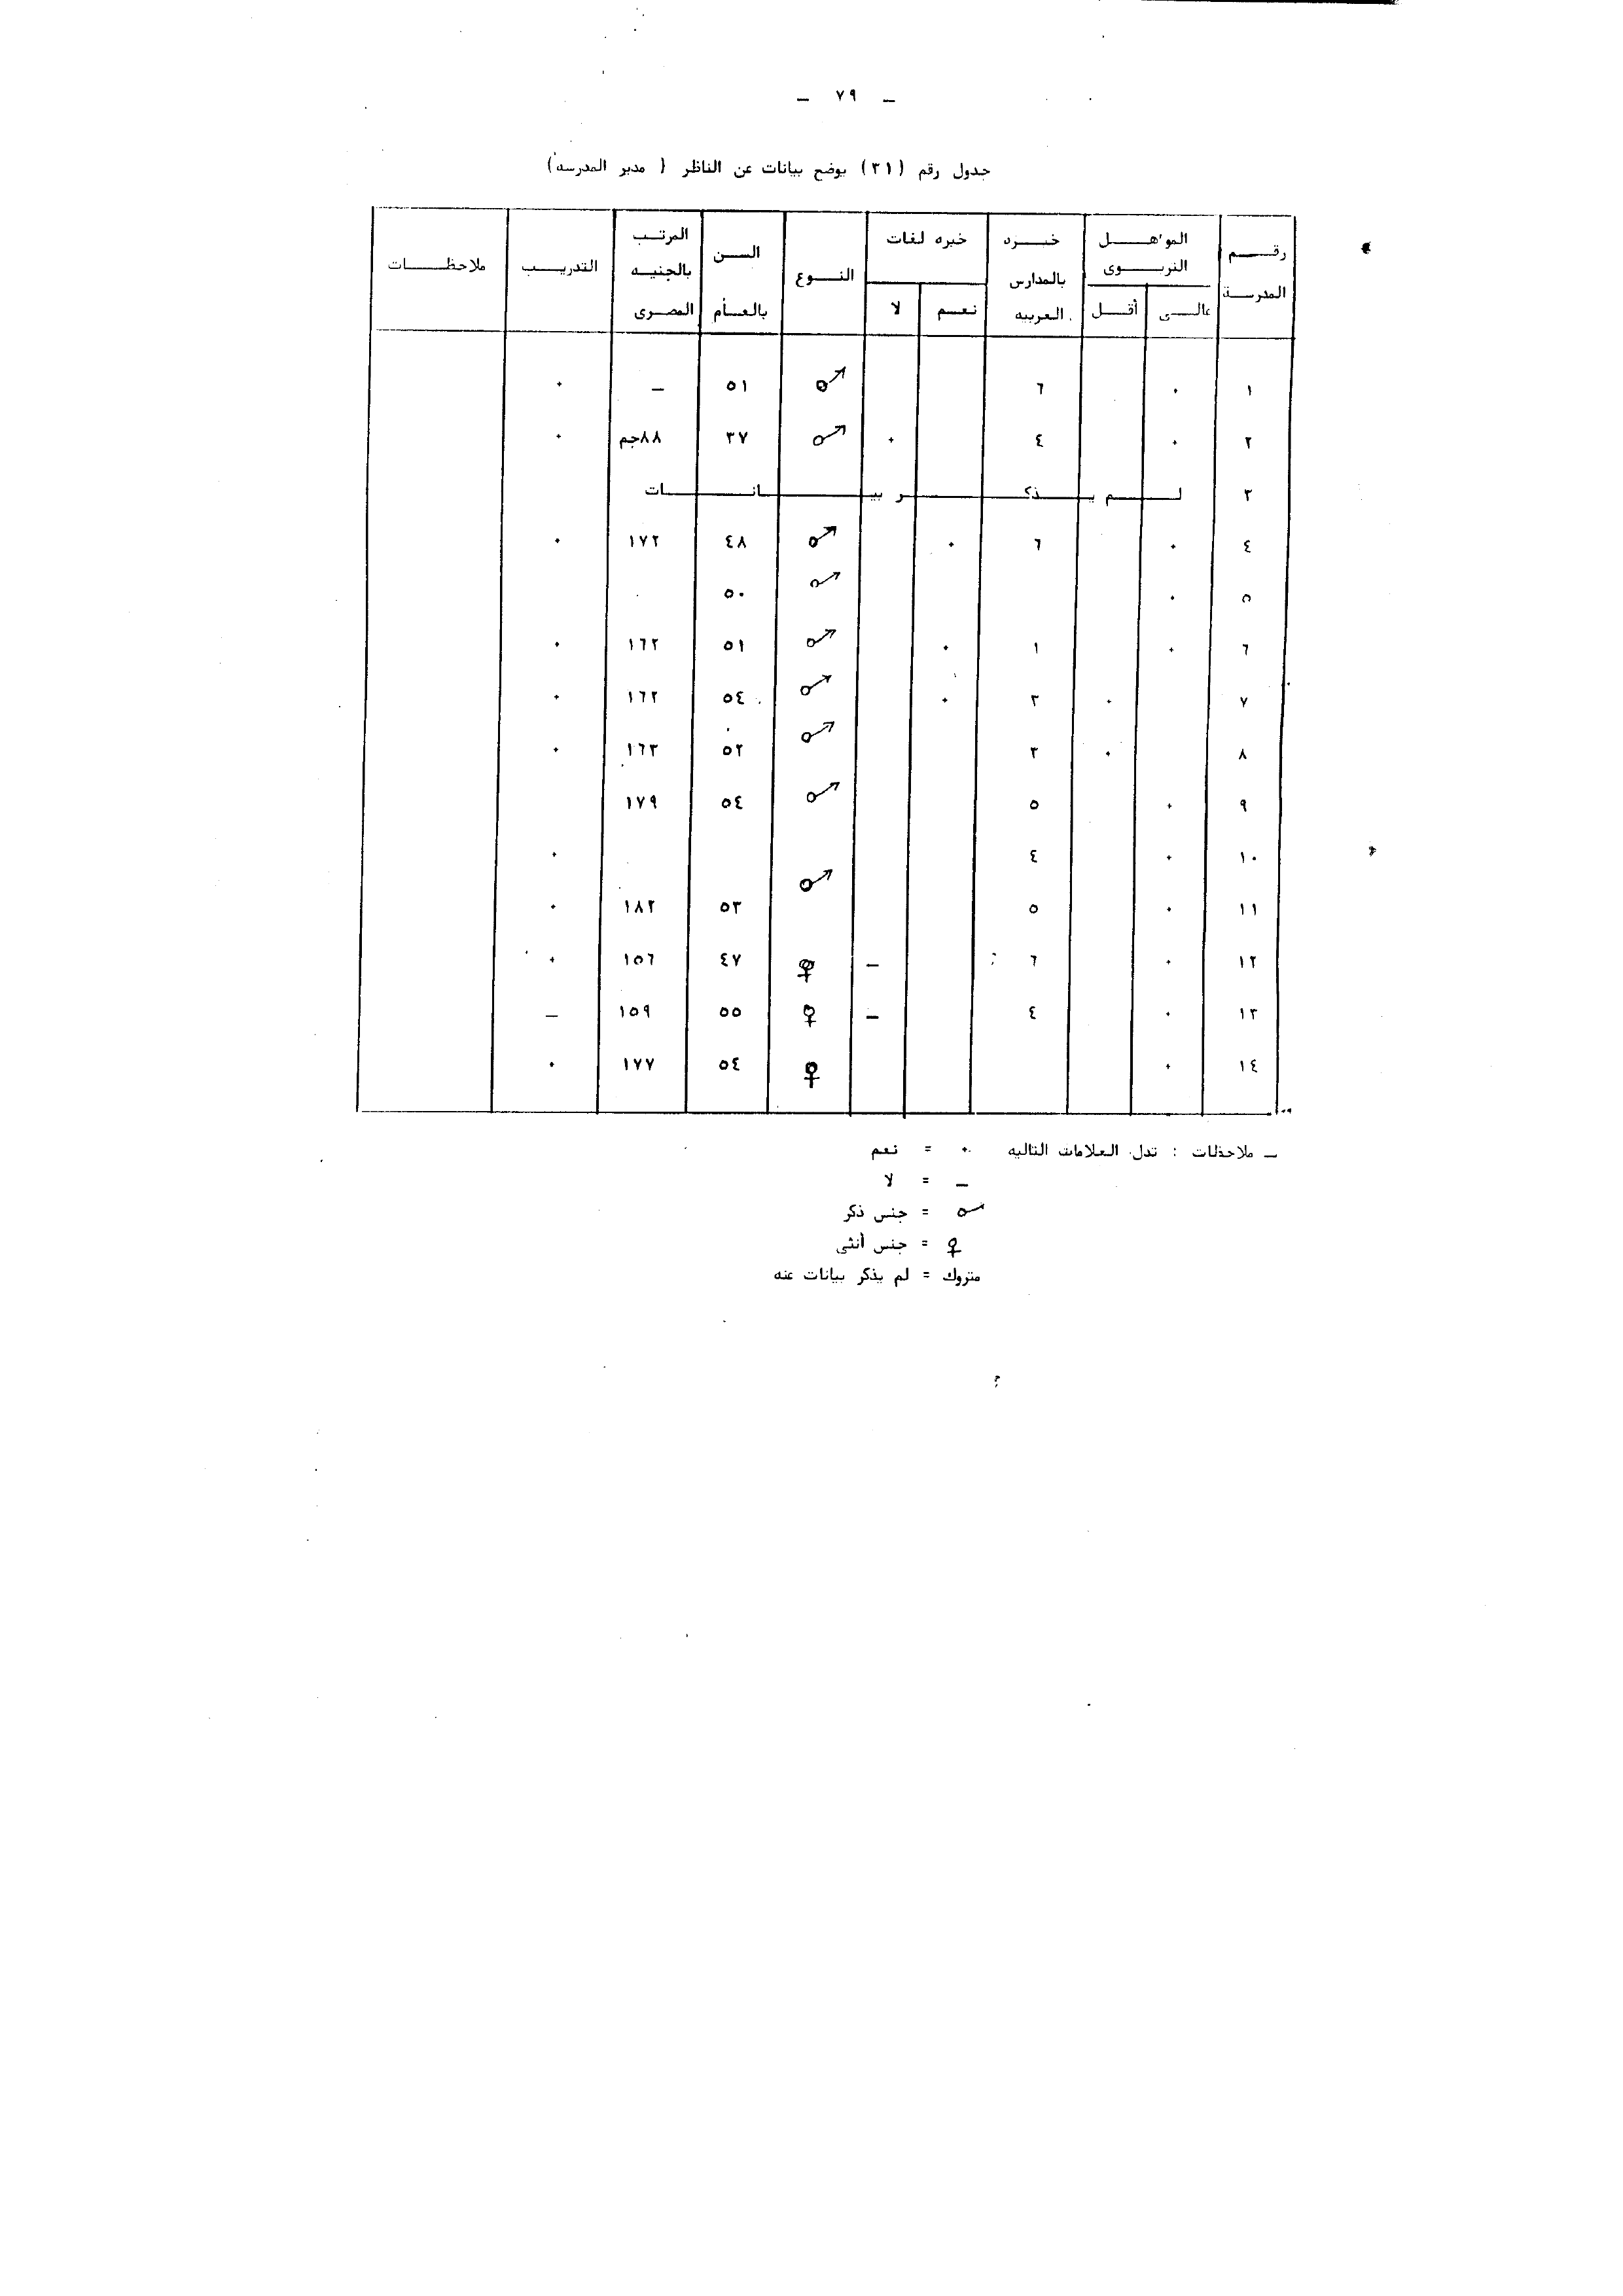 — ٧٩ —
جدول رقم (٣١) يوضح بيانات عن الناظر ( مدير المدرسة)
رقم المدرسة | المؤهل التربوى | خبره بالمدارس العربيه | خبره لغات | النوع | السن بالعام | المرتب بالجنيه المصرى | التدريب | ملاحظات
عالى | أقل | نعم | لا
١ ٠ ٦ ♂ ٥١ — ٠
٢ ٠ ٤ ٠ ♂ ٣٧ ٨٨جم ٠
٣ لم يذكر بيانات
٤ ٠ ٦ ٠ ♂ ٤٨ ١٧٢ ٠
٥ ٠ ♂ ٥٠
٦ ٠ ١ ٠ ♂ ٥١ ١٦٢ ٠
٧ ٠ ٣ ٠ ♂ ٥٤ ١٦٢ ٠
٨ ٠ ٣ ♂ ٥٢ ١٦٣ ٠
٩ ٠ ٥ ♂ ٥٤ ١٧٩
١٠ ٠ ٤ ٠
١١ ٠ ٥ ♂ ٥٣ ١٨٢ ٠
١٢ ٠ ٦ — ♀ ٤٧ ١٥٦ ٠
١٣ ٠ ٤ — ♀ ٥٥ ١٥٩ —
١٤ ٠ ♀ ٥٤ ١٧٧ ٠
— ملاحظات : تدل العلامات التاليه ٠ = نعم
— = لا
♂ = جنس ذكر
♀ = جنس أنثى
متروك = لم يذكر بيانات عنه